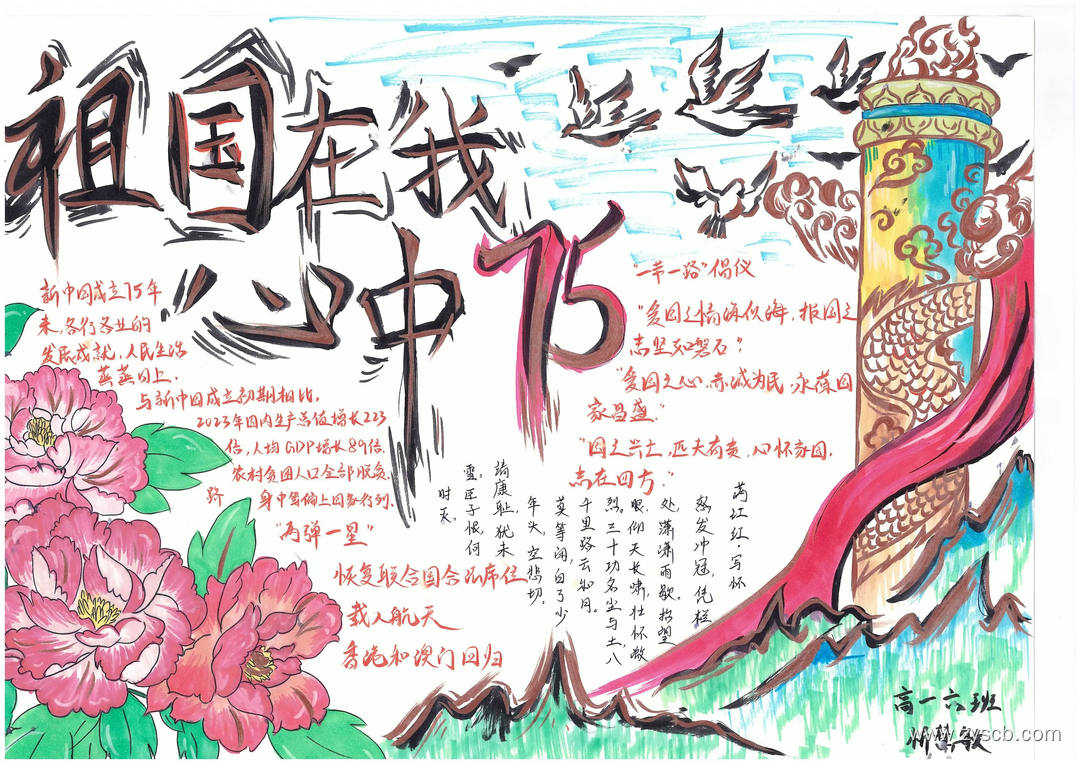 祖国在我
心中
75
新中国成立75年
来，各行各业的
发展成就，人民生活
蒸蒸日上.
与新中国成立初期相比，
2023年国内生产总值增长223
倍，人均GDP增长89倍.
农村贫困人口全部脱贫.
跻身中等偏上国家行列.
"两弹一星"
恢复联合国合法席位
载人航天
香港和澳门回归
"一带一路"倡仪
"爱国之情海似海，报国之
志坚如磐石"
"爱国之心，赤诚为民，永葆国
家昌盛."
"国之兴亡，匹夫有责，心怀家国，
志在四方."
满江红·写怀
怒发冲冠，凭栏
处，潇潇雨歇。抬望
眼，仰天长啸，壮怀激
烈。三十功名尘与土，八
千里路云和月。
莫等闲，白了少
年头，空悲切。
靖康耻，犹未
雪。臣子恨，何
时灭。
高一六班
www.zyscb.com